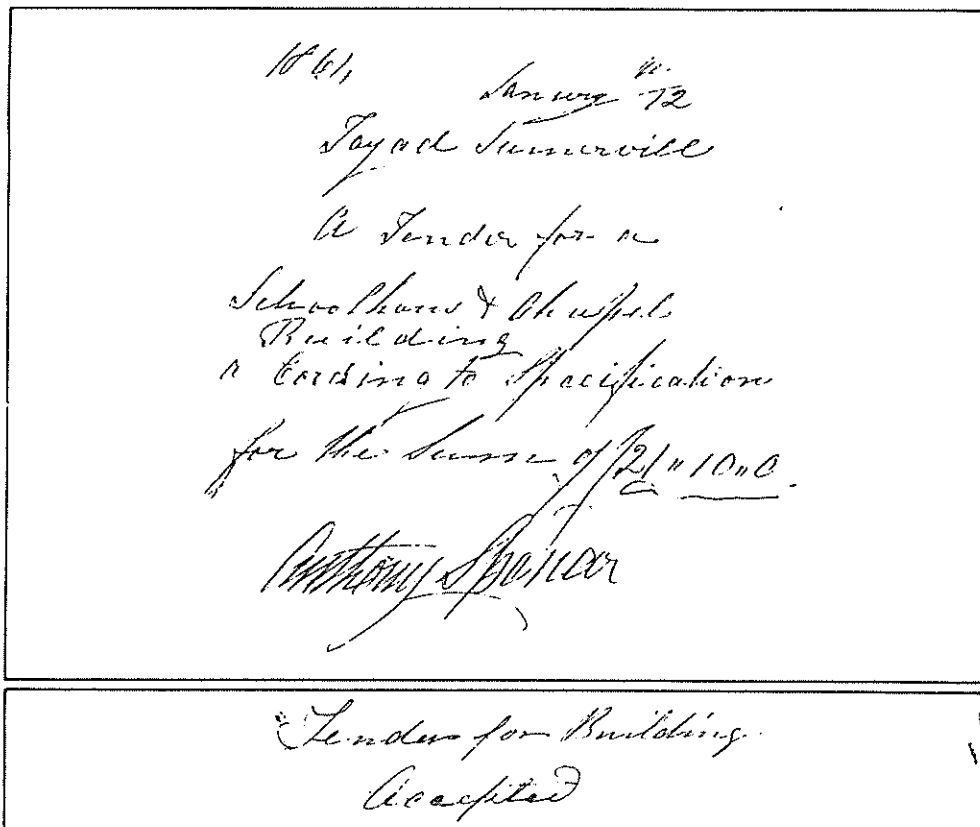 1861,
January 12
Somervill
A Tender for a
Schoolhous & Chappel
Building
a Cording to Specification
for the Summ of £21 " 10 " 0
Anthony Spencer
Tender for Building
Accepted